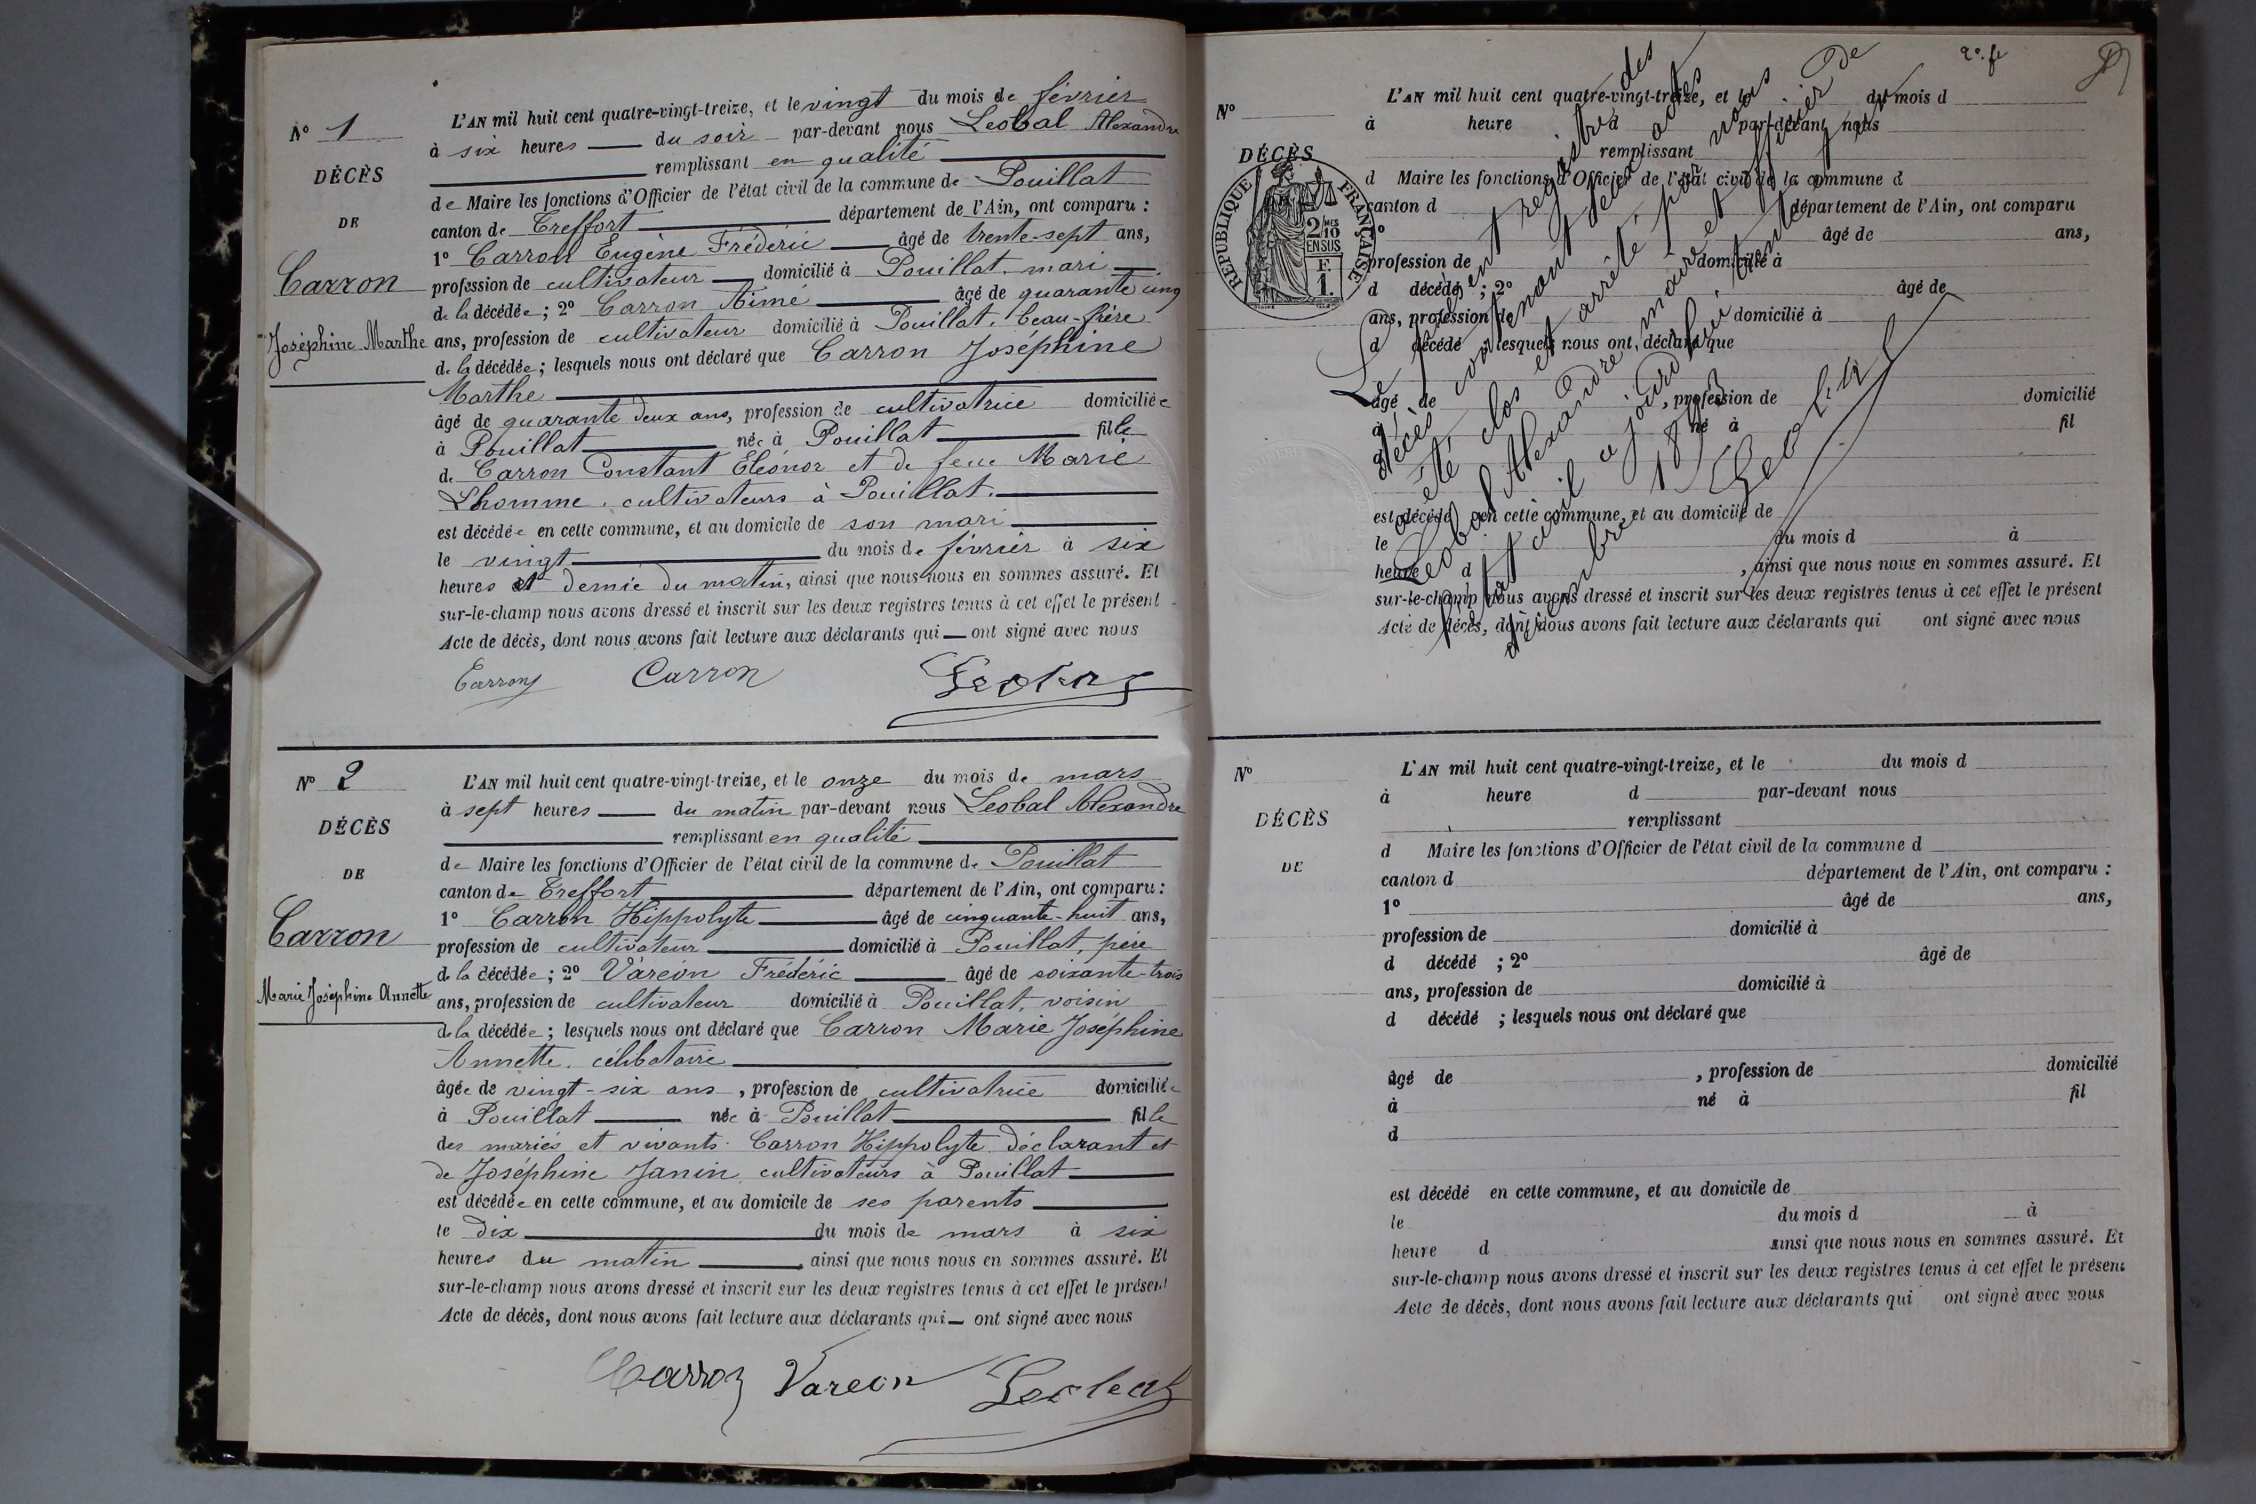 N° 1
DÉCÈS
DE
Carron
Joséphine Marthe
L'AN mil huit cent quatre-vingt-treize, et le vingt du mois de février
à six heures du soir par-devant nous Leobal Alexandre
remplissant en qualité
de Maire les fonctions d'Officier de l'état civil de la commune de Pouillat
canton de Treffort département de l'Ain, ont comparu :
1° Carron Eugène Frédéric âgé de trente-sept ans,
profession de cultivateur domicilié à Pouillat, mari
de la décédée ; 2° Carron Aimé âgé de quarante cinq
ans, profession de cultivateur domicilié à Pouillat, beau-frère
de la décédée ; lesquels nous ont déclaré que Carron Joséphine
Marthe
âgé de quarante deux ans, profession de cultivatrice domiciliée
à Pouillat née à Pouillat fille
de Carron Constant Eléonor et de feue Marie
Lhomme, cultivateurs à Pouillat.
est décédée en cette commune, et au domicile de son mari
le vingt du mois de février à six
heures et demie du matin, ainsi que nous nous en sommes assuré. Et
sur-le-champ nous avons dressé et inscrit sur les deux registres tenus à cet effet le présent
Acte de décès, dont nous avons fait lecture aux déclarants qui ont signé avec nous
Carron Carron
N° 2
DÉCÈS
DE
Carron
Marie Joséphine Annette
L'AN mil huit cent quatre-vingt-treize, et le onze du mois de mars
à sept heures du matin par-devant nous Leobal Alexandre
remplissant en qualité
de Maire les fonctions d'Officier de l'état civil de la commune de Pouillat
canton de Treffort département de l'Ain, ont comparu :
1° Carron Hippolyte âgé de cinquante-huit ans,
profession de cultivateur domicilié à Pouillat, père
de la décédée ; 2° Varéon Frédéric âgé de soixante-trois
ans, profession de cultivateur domicilié à Pouillat, voisin
de la décédée ; lesquels nous ont déclaré que Carron Marie Joséphine
Annette, célibataire
âgée de vingt-six ans, profession de cultivatrice domiciliée
à Pouillat née à Pouillat fille
des mariés et vivants Carron Hippolyte déclarant et
de Joséphine Janin cultivateurs à Pouillat
est décédée en cette commune, et au domicile de ses parents
le dix du mois de mars à six
heures du matin ainsi que nous nous en sommes assuré. Et
sur-le-champ nous avons dressé et inscrit sur les deux registres tenus à cet effet le présent
Acte de décès, dont nous avons fait lecture aux déclarants qui ont signé avec nous
Carron Vareon
2e. fe
N°
DÉCÈS
RÉPUBLIQUE FRANÇAISE
2/10
EN SUS
F.
1.
L'AN mil huit cent quatre-vingt-treize, et le du mois d
à heure d par-devant nous
remplissant
d Maire les fonctions d'Officier de l'état civil de la commune d
canton d département de l'Ain, ont comparu
1° âgé de ans,
profession de domicilié à
d décédé ; 2° âgé de
ans, profession de domicilié à
d décédé ; lesquels nous ont déclaré que
âgé de , profession de domicilié
à né à fil
d
est décédé en cette commune, et au domicile de
le du mois d à
heure d , ainsi que nous nous en sommes assuré. Et
sur-le-champ nous avons dressé et inscrit sur les deux registres tenus à cet effet le présent
Acte de décès, dont nous avons fait lecture aux déclarants qui ont signé avec nous
Le présent registre des
décès contenant deux actes
a été clos et arrêté par nous
Leobal Alexandre maire et officier de
l'état civil ce jourd'hui trente et un
décembre 1893
N°
DÉCÈS
DE
L'AN mil huit cent quatre-vingt-treize, et le du mois d
à heure d par-devant nous
remplissant
d Maire les fonctions d'Officier de l'état civil de la commune d
canton d département de l'Ain, ont comparu :
1° âgé de ans,
profession de domicilié à
d décédé ; 2° âgé de
ans, profession de domicilié à
d décédé ; lesquels nous ont déclaré que
âgé de , profession de domicilié
à né à fil
d
est décédé en cette commune, et au domicile de
le du mois d à
heure d ainsi que nous nous en sommes assuré. Et
sur-le-champ nous avons dressé et inscrit sur les deux registres tenus à cet effet le présent
Acte de décès, dont nous avons fait lecture aux déclarants qui ont signé avec nous